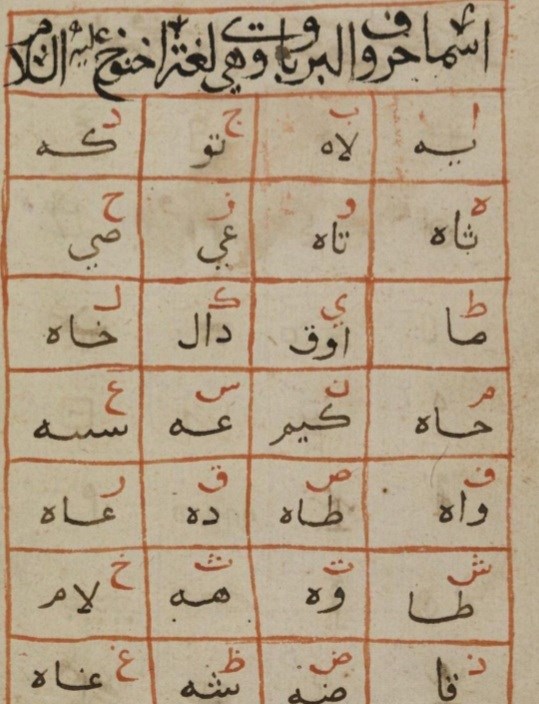 اسما حروف البرباوت وهي لغة اخنوخ عليه السلام
ا ب ج د
يه لاه تو كه
ه و ز ح
ثاه تاه عي صي
ط ي ك ل
ما اوق دال خاه
م ن س ع
حاه كيم عه سسه
ف ص ق ر
واه طاه ده عاه
ش ت ث خ
طا وه هه لام
ذ ض ظ غ
قا ضه شه غاه